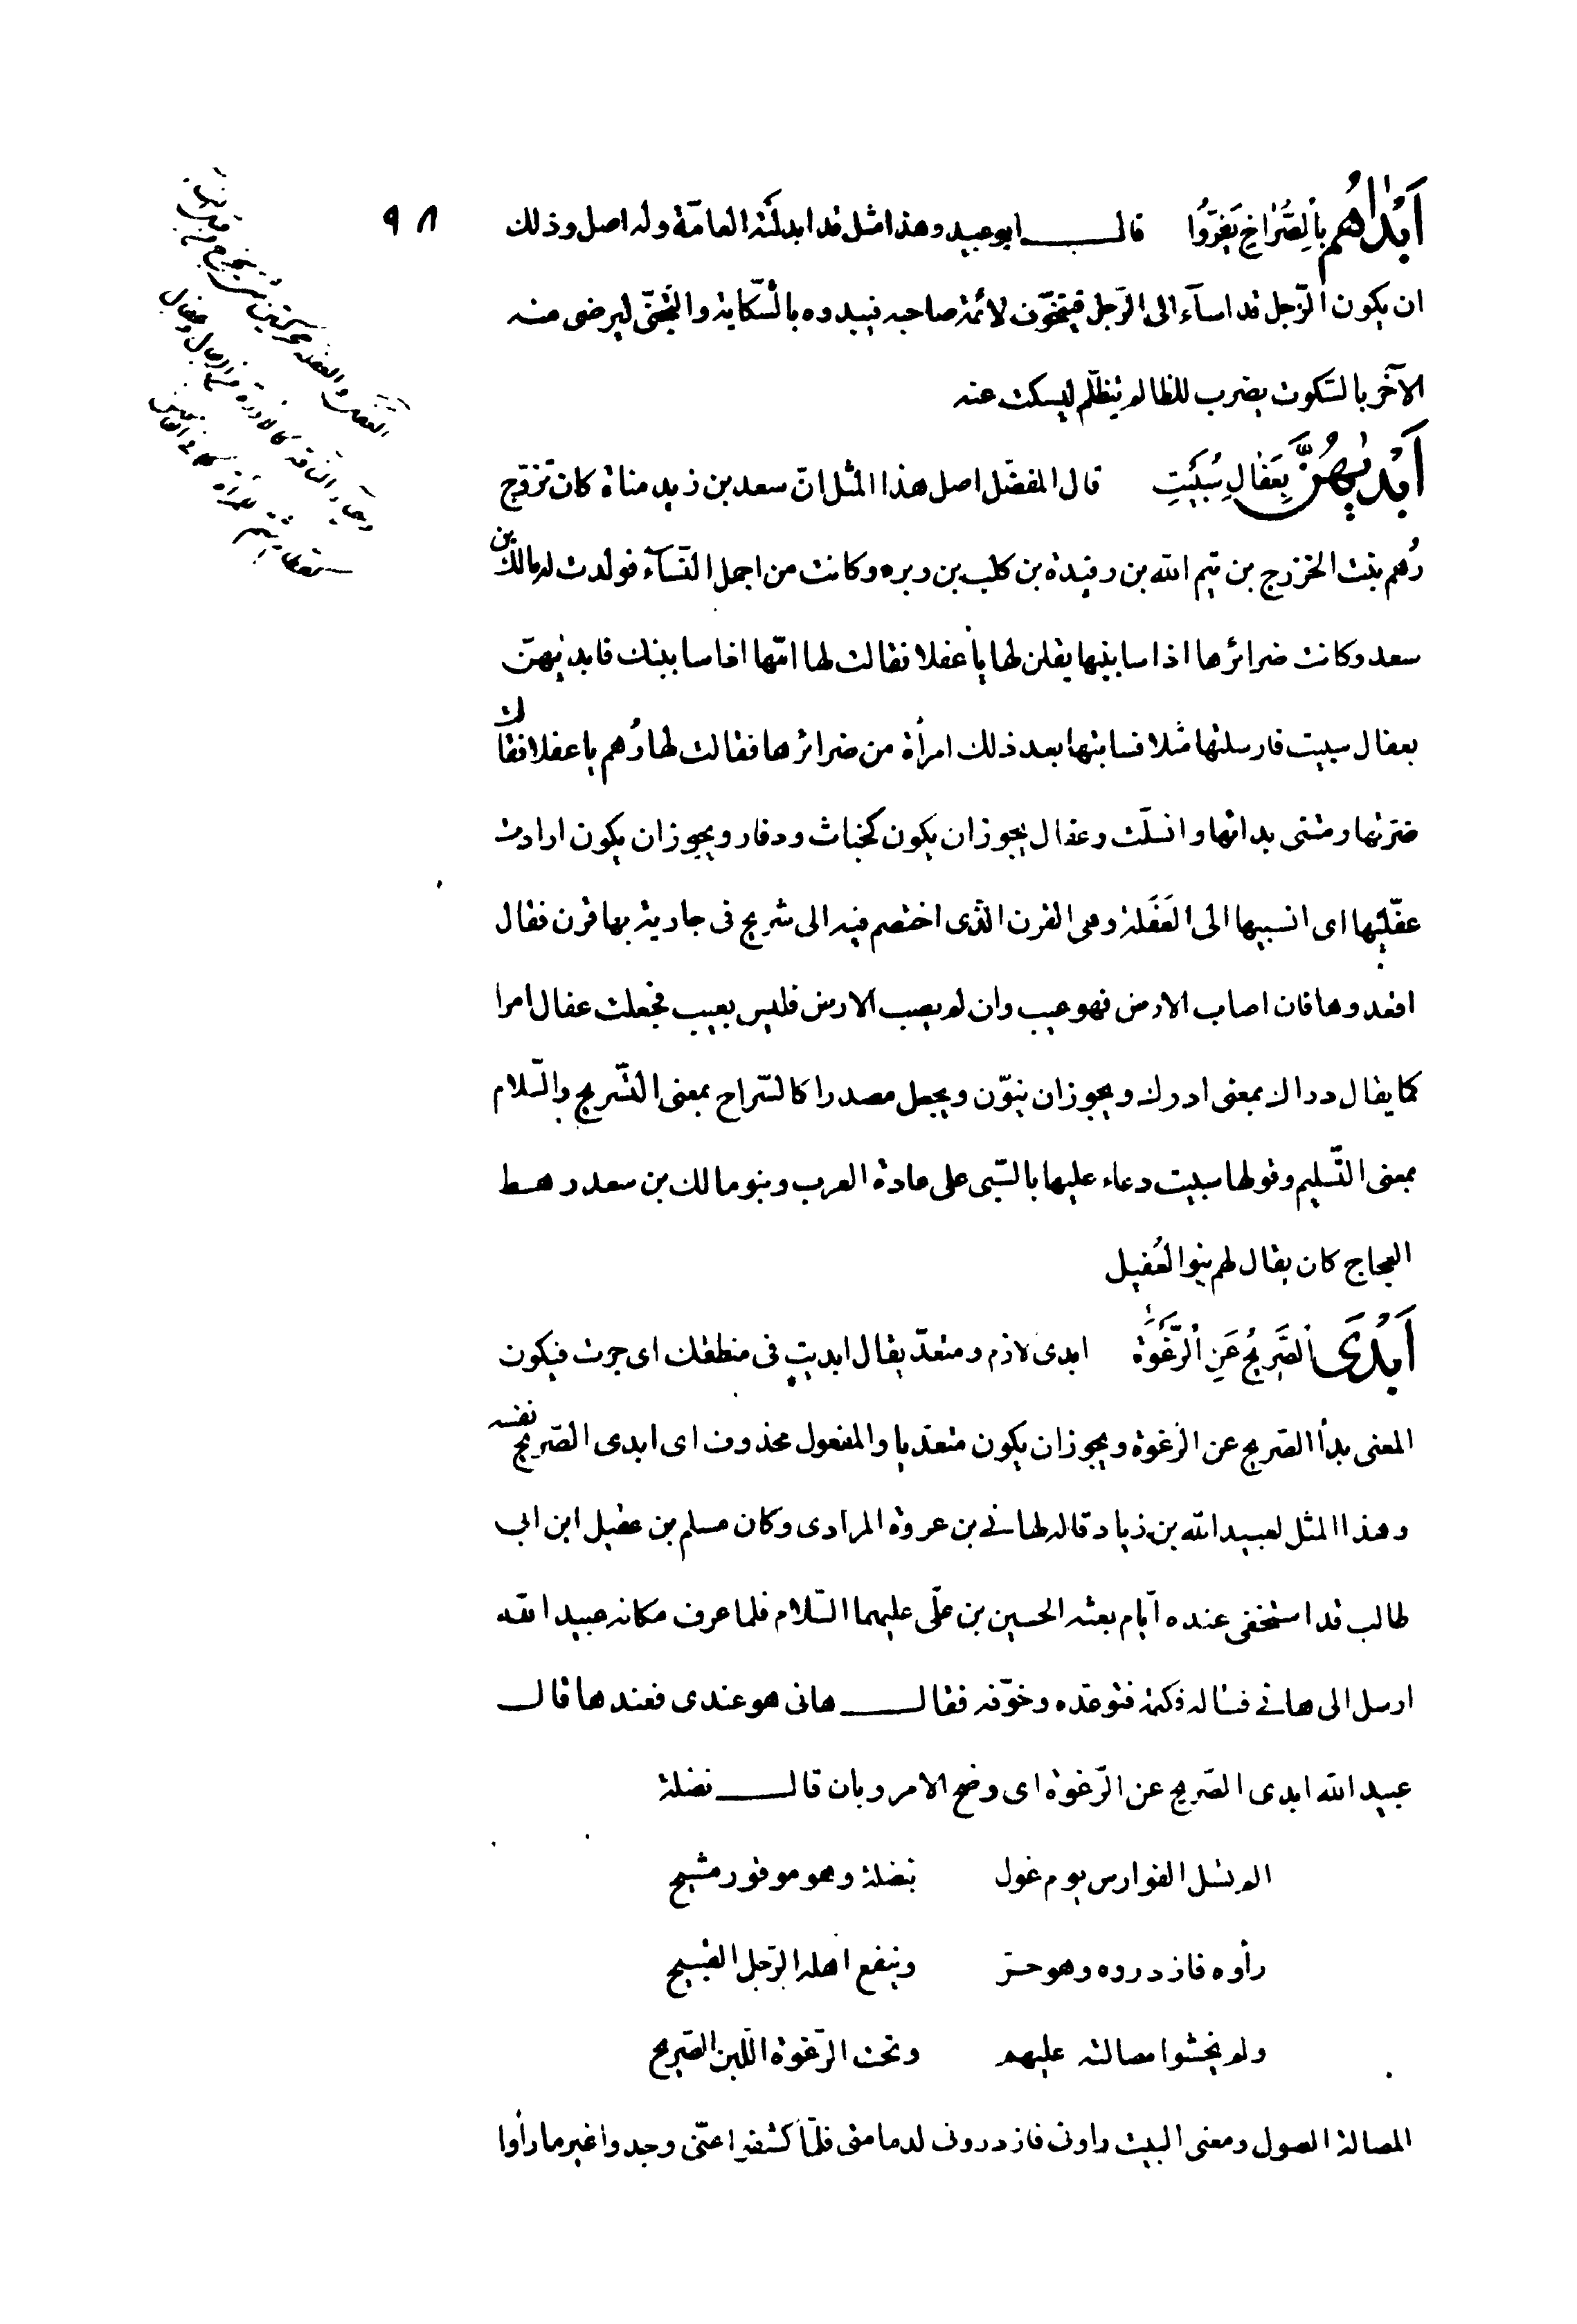 ٩٨
اَبْدَاهُم بِاْلصُّرٰاخِ يَفِرُّوُا قال ابو عبيد و هذا مثل قد ابدلته العامّة و له اصل و ذلك
ان يكون الرّجل قد اسآء الى الرّجل فيتخوّف لائمة صاحبه فيبدوه بالشّكاية و التّجنّى ليرضى منه
الآخر بالسّكوت يضرب للظالم يتظلّم ليسكت عنه
اَبْدَيٖهِنَّ بِعَفٰالِ سُبٖيتِ قال المفضّل اصل هذا المثل انّ سعد بن زيد مناة كان تزوّج
رُهم بنت الخزرج بن تيم الله بن رفيدة بن كلب بن وبره و كانت من اجمل النّسآء فولدت له مالك بن
سعد و كانت ضرائرها اذا سابنيها يقلن لها يا عفلا فقالت لها امّها اذا سابنك فابديٖهنّ
بعفال سبيت فارسلتها مثلا فسابتها بعد ذلك امرأة من ضرائرها فقالت لها رُهم يا عفلا فقالت
ضرّتها رمتنى بدائها و انسلّت و عفال يجوز ان يكون كخباث و دفار و يجوز ان يكون ارادت
عفّليها اى انسبيها الى العَفَلة و هى القرن الّذى اختصم فيه الى شريح فى جارية بها قرن فقال
اقعدوها فان اصاب الارض فهو عيب و ان لم يصب الارض فليس بعيب فجعلت عفال امرا
كما يقال دراك بمعنى ادرك و يجوز ان ينوّن و يجعل مصدرا كالسّراح بمعنى التّسريح و السّلام
بمعنى التّسليم و قولها سبيت دعاء عليها بالسّبى على عادة العرب و بنو مالك بن سعد رهط
العجاج كان يقال لهم بنو العُفيل
اَبْدَى الْصَّرٖيحُ عَنِ اْلرَّغْوَةِ ابدى لازم و متعدّ يقال ابديت فى منطقك اى جرت فيكون
المعنى بدأ الصّريح عن الرّغوة و يجوز ان يكون متعدّيا و المفعول محذوف اى ابدى الصّريح نفسه
و هذا المثل لعبيد الله بن زياد قاله لهانى بن عروة المرادى و كان مسلم بن عقيل ابن ابى
طالب قد استخفى عنده ايّام بعثه الحسين بن علّى عليهما السّلام فلما عرف مكانه عبيد الله
ارسل الى هانى فساله فكتمه فتوعّده و خوّفه فقال هانى هو عندى فعندها قال
عبيد الله ابدى الصّريح عن الرّغوة اى وضح الامر و بان قال نضلة
الم تسل الفوارس يوم غول بنضلة و هو موفور مشيح
رأوه فازدروه و هو حرّ و ينفع اهله الرّجل القبيح
و لم يخشوا مصالته عليهم و تحت الرّغوة اللّبن الصّريح
المصالة الصول و معنى البيت راونى فازدرونى لدمامتى فلمّا كشفوا عنّى وجدوا غير ما رأوا